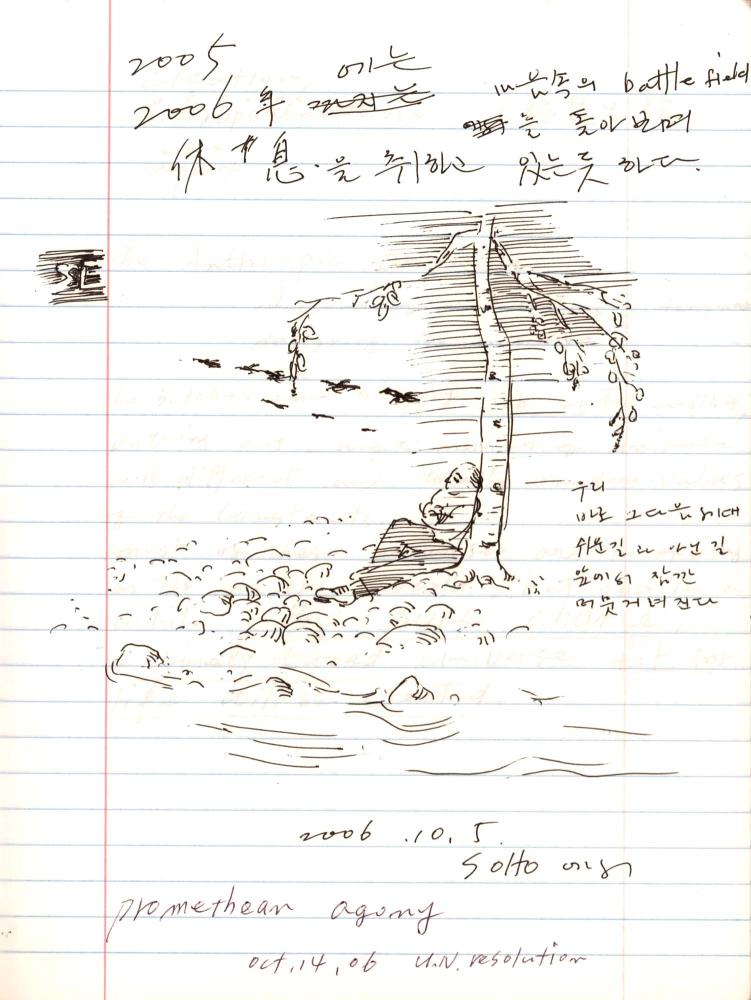 2005
2006年 에는 마음속의 battle field
을 돌아보며
休息을 취하고 있는듯 하다.
SE
우리
바로 그다음세대
쉬운길과 아닌길
앞에서 잠깐
머뭇거려진다
2006.10.5.
SOHO 에서
promethean agony
oct.14,06 U.N. resolution